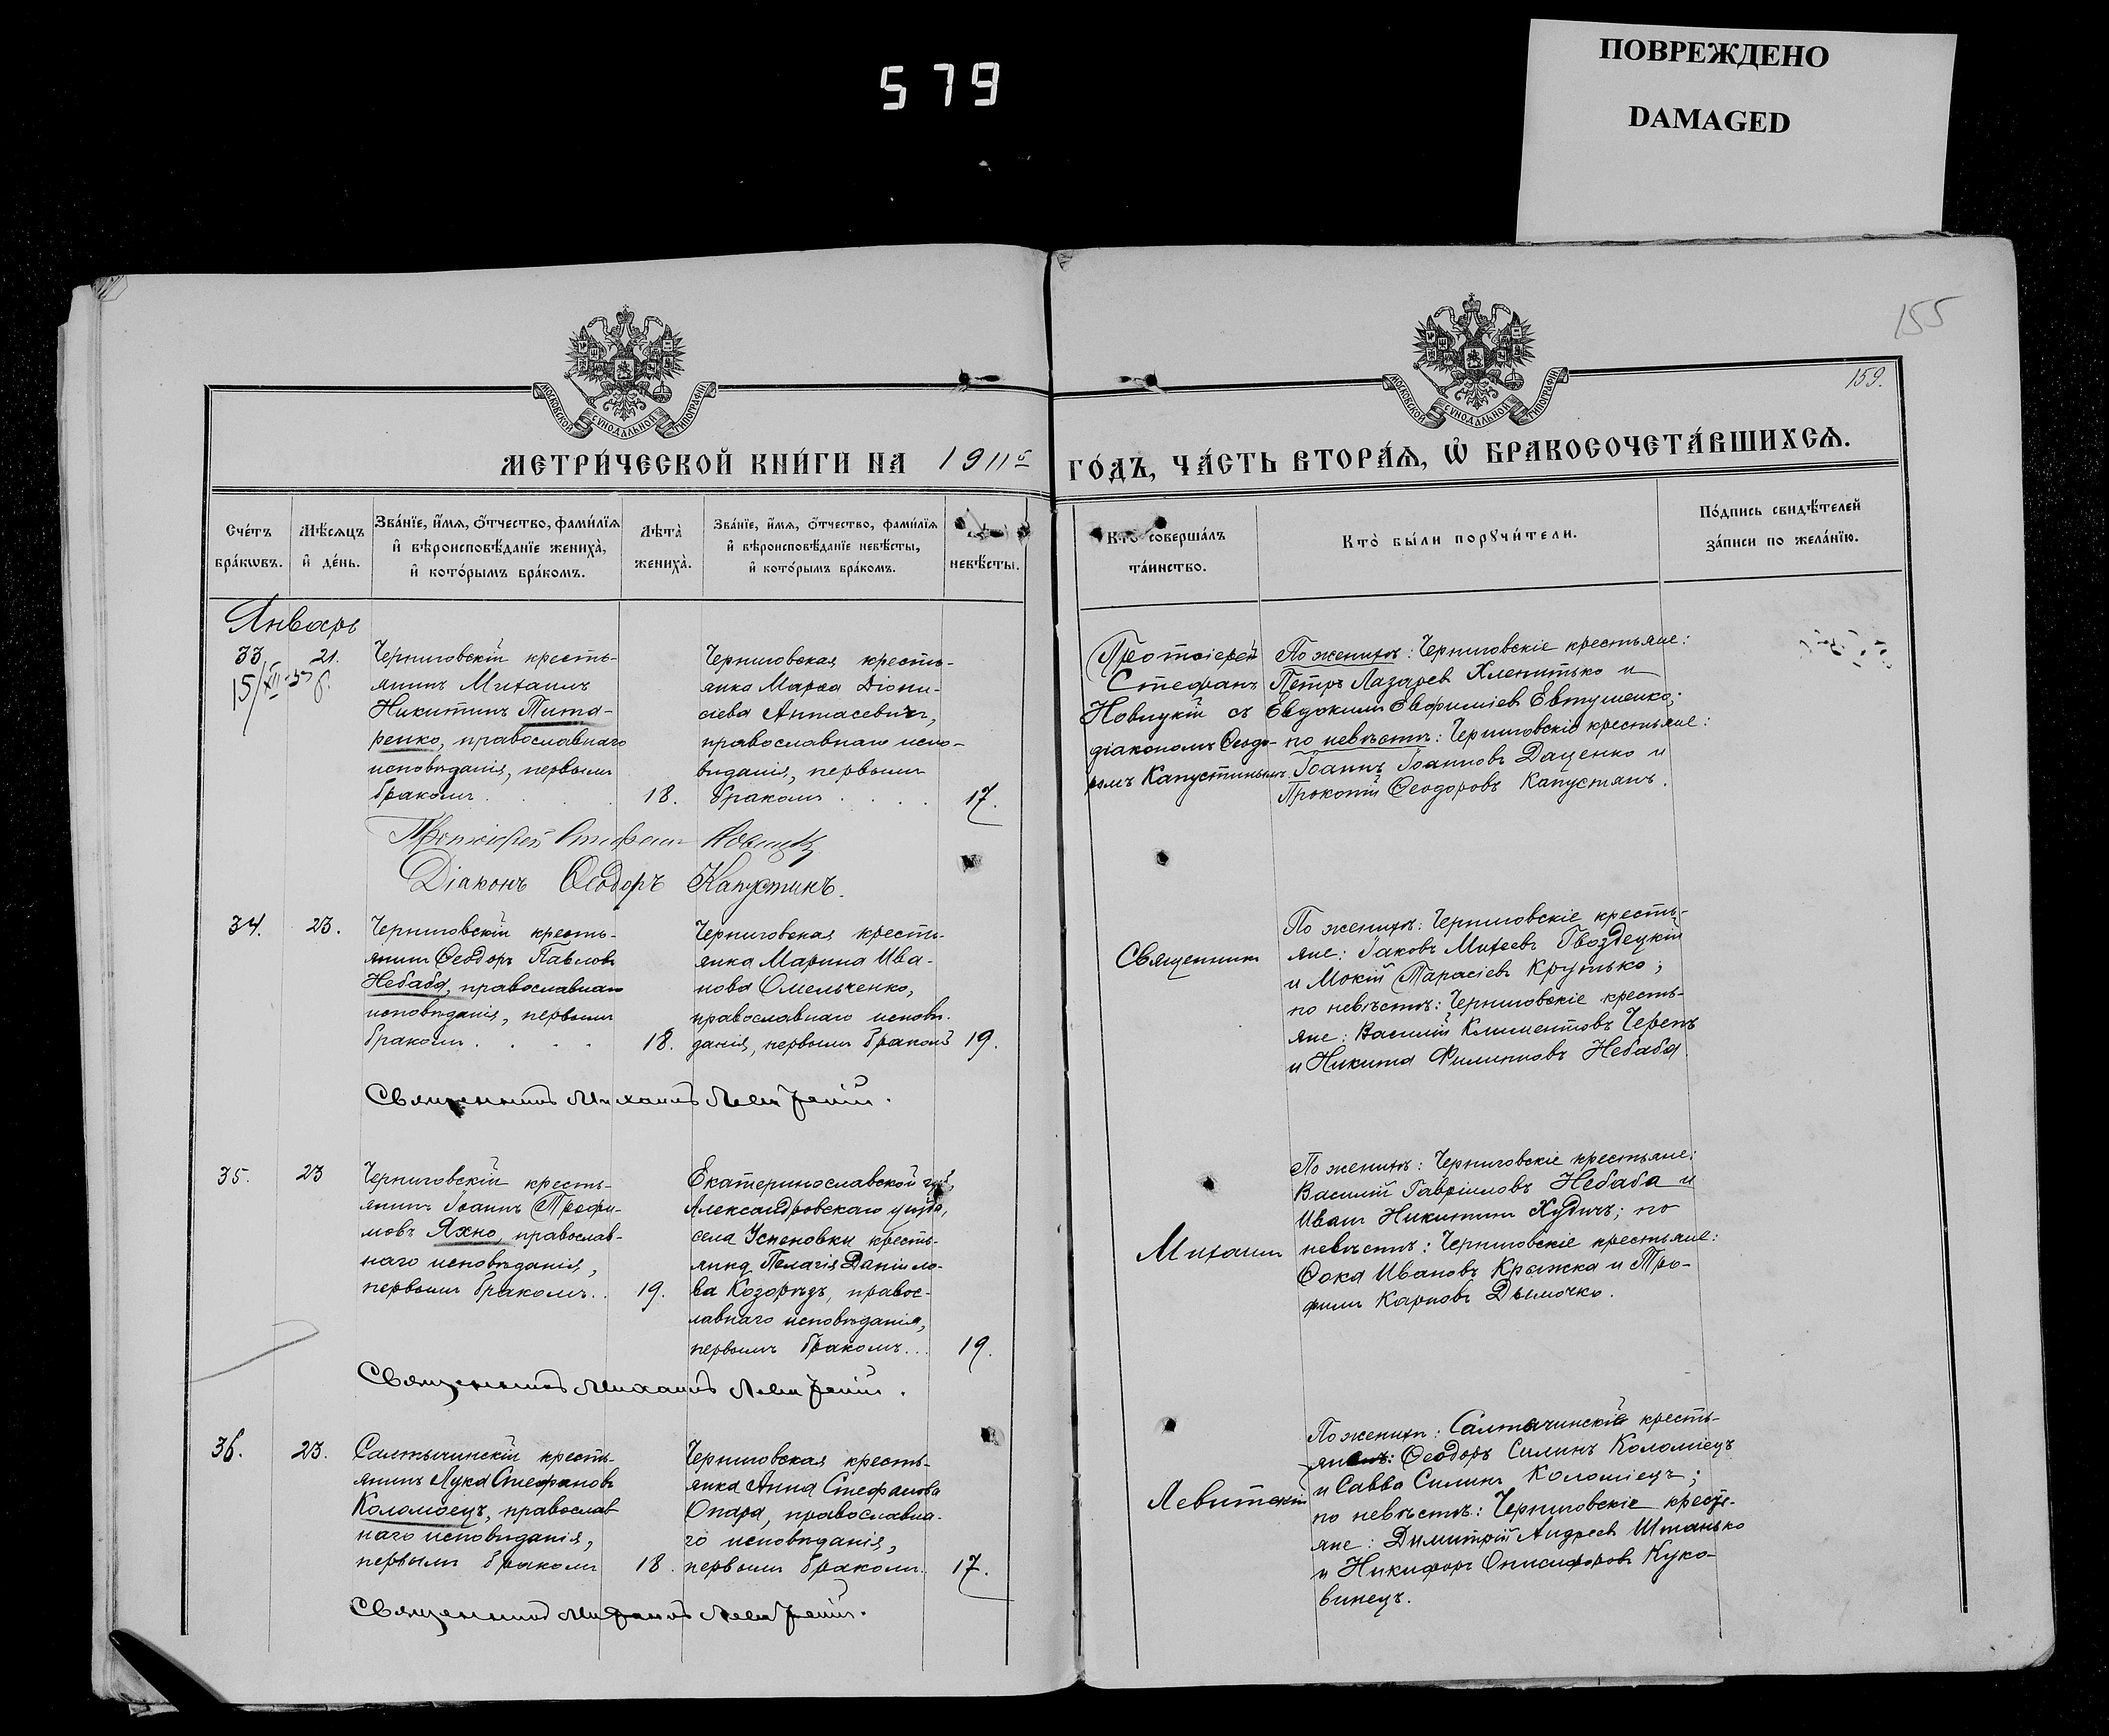 579
ПОВРЕЖДЕНО
DAMAGED
155
159.
МОСКОВСКОЙ СѴНОДАЛЬНОЙ ТИПОГРАФІИ
МОСКОВСКОЙ СѴНОДАЛЬНОЙ ТИПОГРАФІИ
МЕТРИ́ЧЕСКОЙ КНИ́ГИ НА 1911й ГО́ДЪ, ЧА́СТЬ ВТОРА́Ѧ, Ѡ БРАКОСОЧЕТА́ВШИХСѦ.
Сче́тъ
бра́кѡвъ.
Мѣ́сѧцъ
и҆ де́нь.
Зва́нїе, и҆́мѧ, ѻ҆́тчество, фами́лїѧ
и҆ вѣроисповѣ́данїе жениха̀,
и҆ кото́рымъ бра́комъ.
Лѣта̀
жениха̀.
Зва́нїе, и҆́мѧ, ѻ҆́тчество, фами́лїѧ
и҆ вѣроисповѣ́данїе невѣ́сты,
и҆ кото́рымъ бра́комъ.
невѣ́сты.
Кто̀ соверша́лъ
та́инство.
Кто̀ бы́ли порꙋчи́тели.
По́дпись свидѣ́телей
за́писи по жела́нїю.
Январь
33
21.
15/XII-55 г.
Черниговскій кресть-
янинъ Михаилъ
Никитинъ Тита-
ренко, православнаго
исповѣданія, первымъ
бракомъ . . . .
18.
Черниговская кресть-
янка Марѳа Діони-
сіева Антасевичъ,
православнаго испо-
вѣданія, первымъ
бракомъ . . . .
17.
Протоіерей
Стефанъ
Новицкій съ
діакономъ Ѳеодо-
ромъ Капустинымъ.
По женихѣ: Черниговскіе крестьяне:
Петръ Лазаревъ Хленитько и
Евдокимъ Евфиміевъ Евтушенко;
по невѣстѣ: Черниговскіе крестьяне:
Іоаннъ Іоанновъ Даценко и
Прокопій Ѳеодоровъ Капустянъ.
Протоіерей Стефанъ Новицкій
Діаконъ Ѳеодоръ Капустинъ.
34.
23.
Черниговскій кресть-
янинъ Ѳеодоръ Павловъ
Небаба, православнаго
исповѣданія, первымъ
бракомъ . . . .
18.
Черниговская кресть-
янка Марина Ива-
нова Омельченко,
православнаго исповѣ-
данія, первымъ бракомъ
19.
Священникъ
По женихѣ: Черниговскіе кресть-
яне: Іаковъ Михеевъ Гвоздецкій
и Мокій Тарасіевъ Крутько;
по невѣстѣ: Черниговскіе кресть-
яне: Василій Климентовъ Черепъ
и Никита Филипповъ Небаба.
Священникъ Михаилъ Левитскій.
35.
23
Черниговскій кресть-
янинъ Іоаннъ Трофи-
мовъ Яхно, православ-
наго исповѣданія,
первымъ бракомъ. .
19.
Екатеринославской губ.
Александровскаго уѣзда,
села Успеновки кресть-
янка Пелагія Даніило-
ва Козорѣзъ, правос-
лавнаго исповѣданія,
первымъ бракомъ...
19.
Михаилъ
По женихѣ: Черниговскіе крестьяне:
Василій Гавріиловъ Небаба и
Иванъ Никитинъ Худичъ; по
невѣстѣ: Черниговскіе крестьяне:
Ѳока Ивановъ Кряжка и Тро-
фимъ Карповъ Дымочко.
Священникъ Михаилъ Левитскій.
36.
23.
Салтычинскій кресть-
янинъ Лука Стефановъ
Коломоецъ, православ-
наго исповѣданія,
первымъ бракомъ
18.
Черниговская кресть-
янка Анна Стефанова
Опара, православна-
го исповѣданія,
первымъ бракомъ.
17.
Левитскій
По женихѣ: Салтычинскіе кресть-
яне: Ѳеодоръ Силинъ Коломіецъ
и Савва Силинъ Коломіецъ;
по невѣстѣ: Черниговскіе кресть-
яне: Димитрій Андреевъ Штанько
и Никифоръ Онисифоровъ Куко-
винецъ.
Священникъ Михаилъ Левитскій.